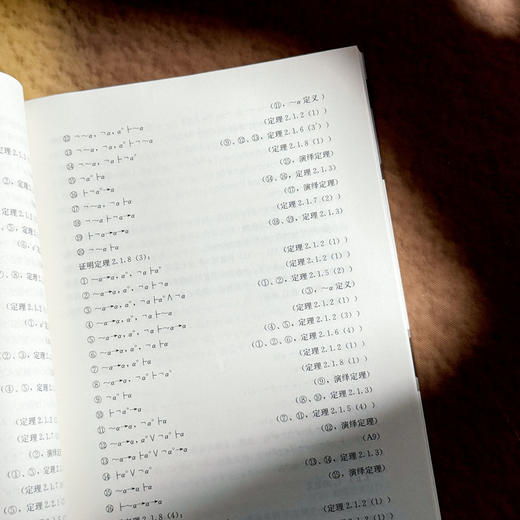 ⑫ ¬~α, ¬α, α°├~α (⑪, ~α定义)
⑬ ¬~α, ¬α, α°├¬~α (定理2.1.2(1))
⑭ ¬~α, ¬α├¬α° (⑨、⑫、⑬, 定理2.1.6(3′))
⑮ ¬α°├α (定理2.1.8(1))
⑯ ├¬α°→α (⑮, 演绎定理)
⑰ ¬~α, ¬α├α (⑭、⑯, 定理2.1.3)
⑱ ¬~α├¬α→α (⑰, 演绎定理)
⑲ ├¬α→α→α (定理2.1.7(2))
⑳ ¬~α├α (⑱、⑲, 定理2.1.3)
证明定理2.1.8(3):
① ~α→α, α°, ¬α├α° (定理2.1.2(1))
② ~α→α, α°, ¬α├¬α (定理2.1.2(1))
③ ~α→α, α°, ¬α├α°∧¬α (①、②, 定理2.1.5(2))
④ ~α→α, α°, ¬α├~α (③, ~α定义)
⑤ ~α→α, α°, ¬α├~α→α (定理2.1.2(1))
⑥ ~α→α, α°, ¬α├α (④、⑤, 定理2.1.2(3))
⑦ ~α→α, α°├α (①、②、⑥, 定理2.1.6(4))
⑧ ~α→α, ¬α°├¬α° (定理2.1.2(1))
⑨ ¬α°├α (定理2.1.8(1))
⑩ ├¬α°→α (⑨, 演绎定理)
⑪ ~α→α, ¬α°├α (⑧、⑩, 定理2.1.3)
⑫ ~α→α, α°∨¬α°├α (⑦、⑪, 定理2.1.5(4))
⑬ ~α→α├α°∨¬α°→α (⑫, 演绎定理)
⑭ ├α°∨¬α° (A9)
⑮ ~α→α├α (⑬、⑭, 定理2.1.3)
⑯ ├~α→α→α (⑮, 演绎定理)
定理2.1.8(4): (定理2.1.2(1))